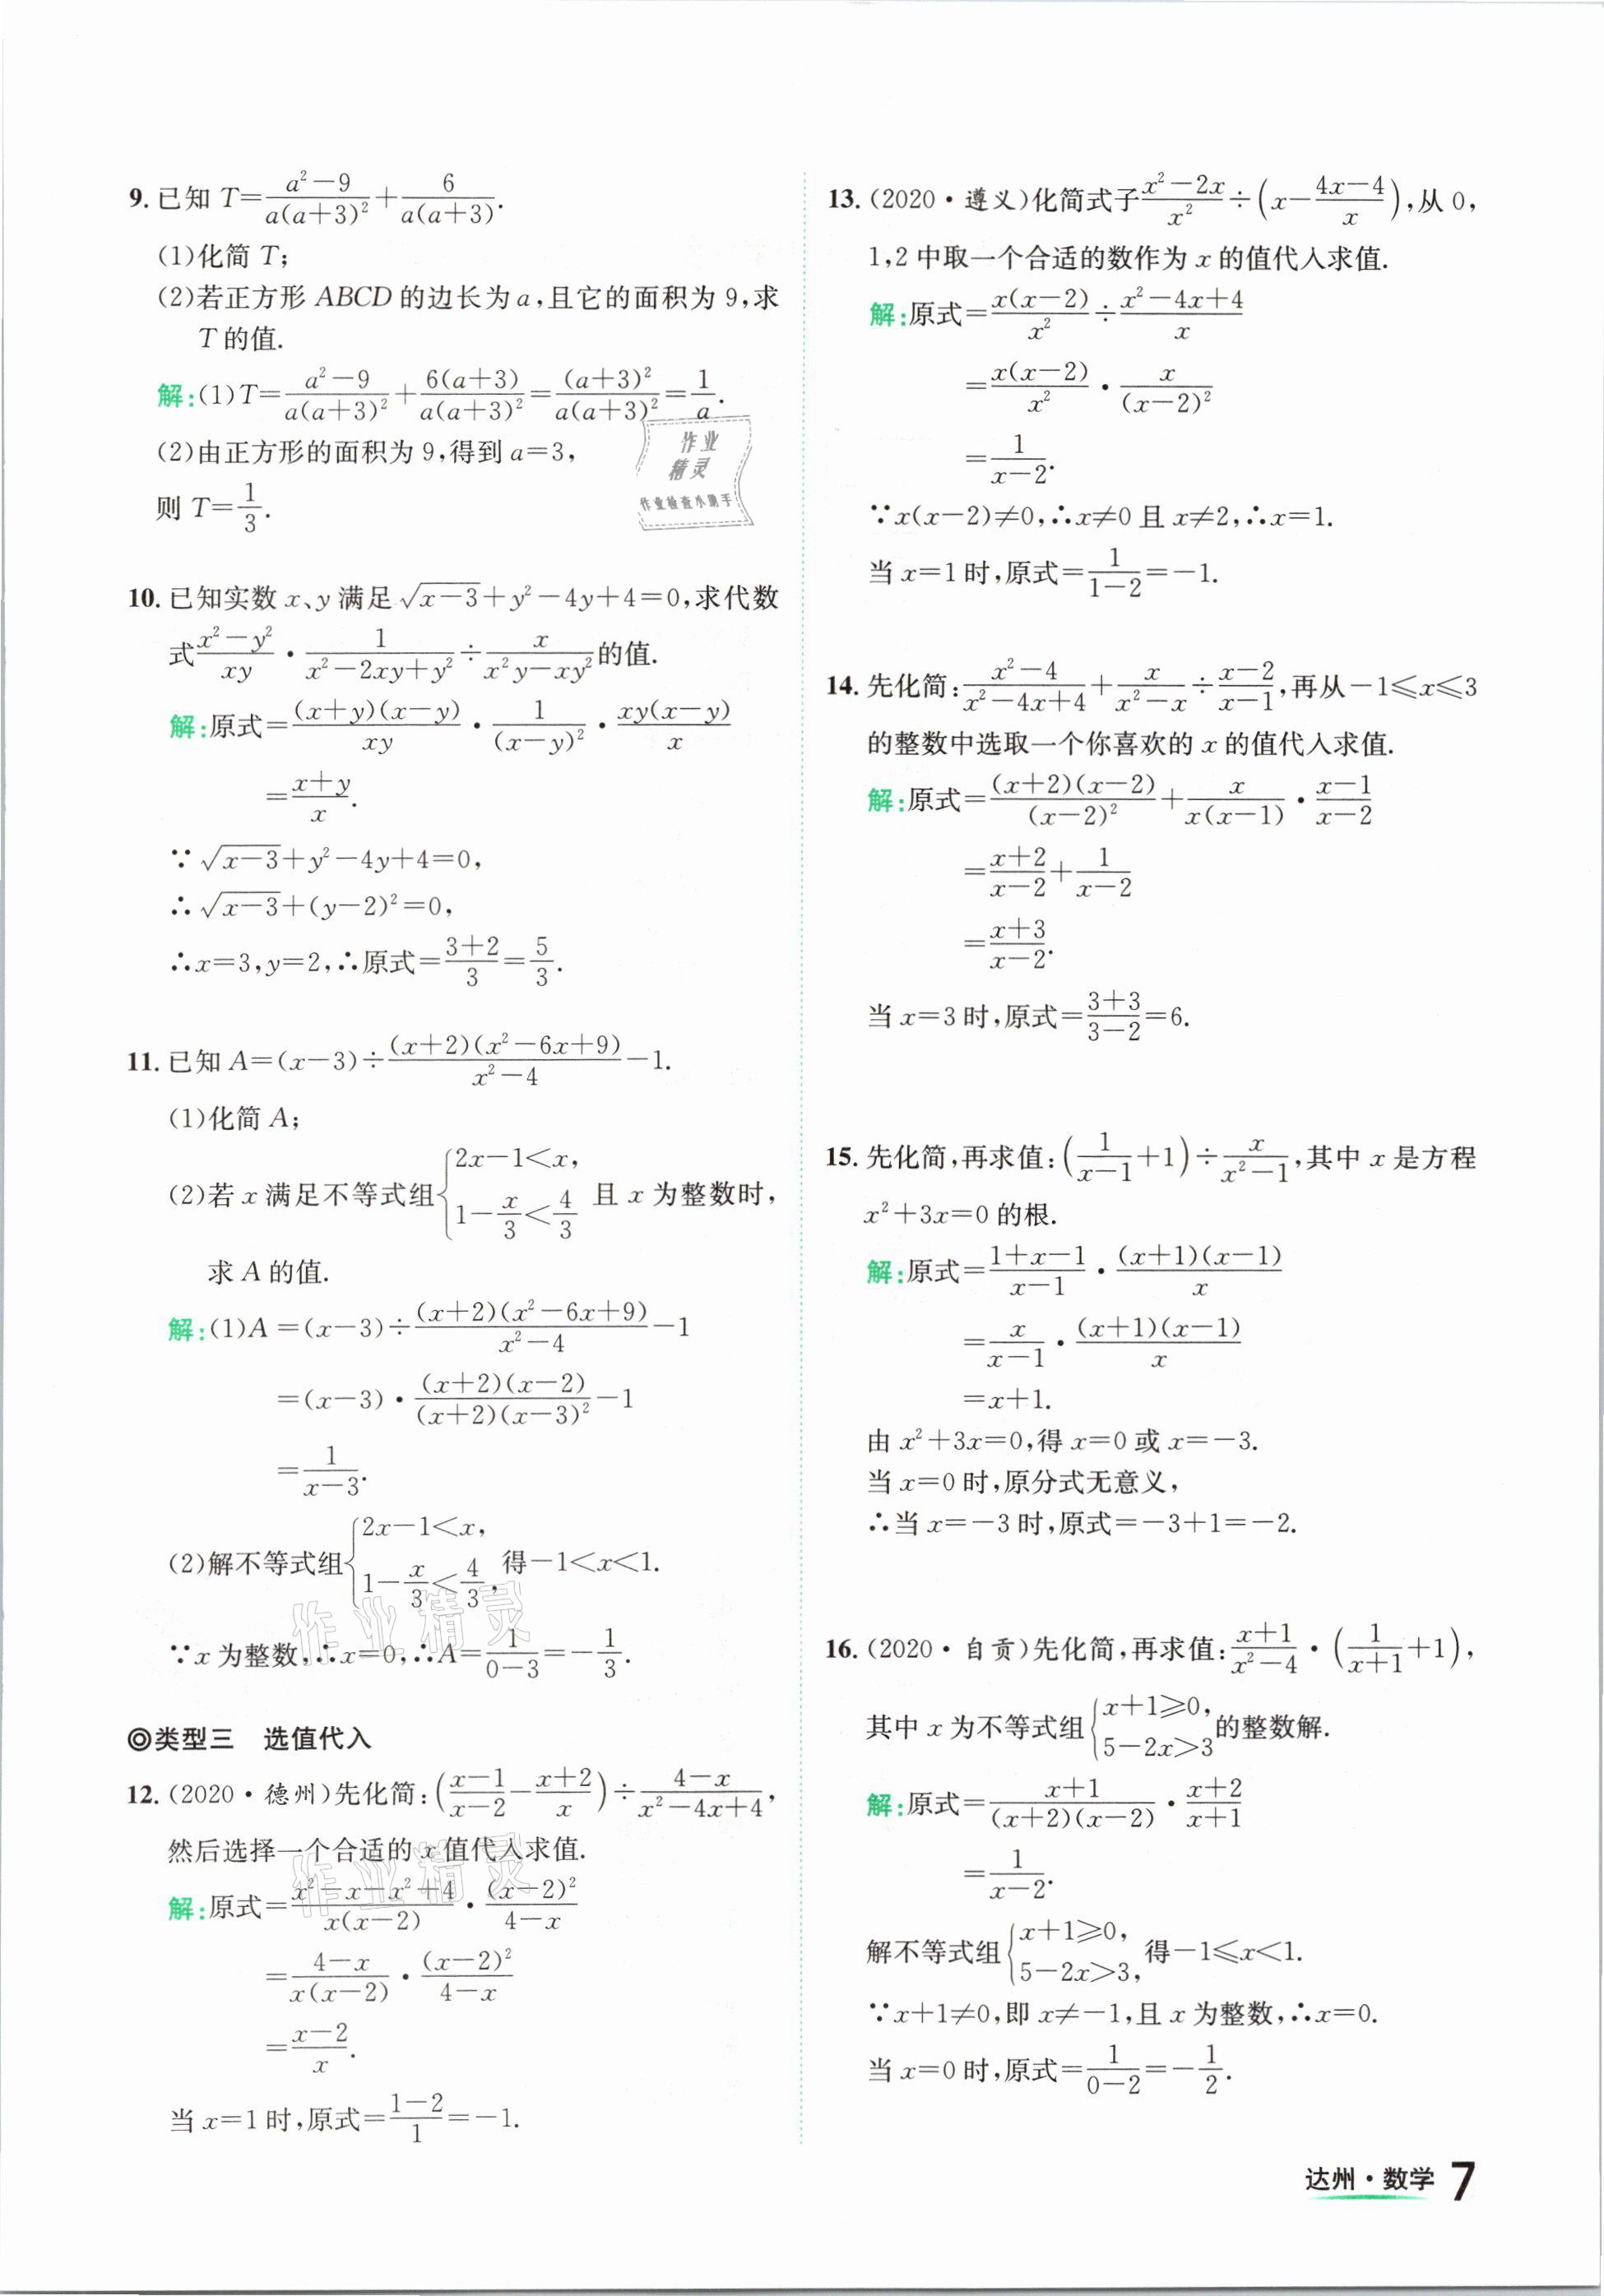 9. 已知 T=\frac{a²-9}{a(a+3)²}+\frac{6}{a(a+3)}.
(1)化简 T;
(2)若正方形 ABCD 的边长为 a,且它的面积为 9,求
T 的值.
解:(1)T=\frac{a²-9}{a(a+3)²}+\frac{6(a+3)}{a(a+3)²}=\frac{(a+3)²}{a(a+3)²}=\frac{1}{a}.
(2)由正方形的面积为 9,得到 a=3,
则 T=\frac{1}{3}.
作业
精灵
作业检查小助手
10. 已知实数 x、y 满足 \sqrt{x-3}+y²-4y+4=0,求代数
式\frac{x²-y²}{xy}·\frac{1}{x²-2xy+y²}÷\frac{x}{x²y-xy²}的值.
解:原式=\frac{(x+y)(x-y)}{xy}·\frac{1}{(x-y)²}·\frac{xy(x-y)}{x}
=\frac{x+y}{x}.
∵\sqrt{x-3}+y²-4y+4=0,
∴\sqrt{x-3}+(y-2)²=0,
∴x=3,y=2,∴原式=\frac{3+2}{3}=\frac{5}{3}.
11. 已知 A=(x-3)÷\frac{(x+2)(x²-6x+9)}{x²-4}-1.
(1)化简 A;
(2)若 x 满足不等式组{2x-1<x, 1-\frac{x}{3}<\frac{4}{3} 且 x 为整数时,
求 A 的值.
解:(1)A=(x-3)÷\frac{(x+2)(x²-6x+9)}{x²-4}-1
=(x-3)·\frac{(x+2)(x-2)}{(x+2)(x-3)²}-1
=\frac{1}{x-3}.
(2)解不等式组{2x-1<x, 1-\frac{x}{3}<\frac{4}{3}, 得-1<x<1.
∵x 为整数,∴x=0,∴A=\frac{1}{0-3}=-\frac{1}{3}.
作业精灵
◎类型三 选值代入
12. (2020·德州)先化简:(\frac{x-1}{x-2}-\frac{x+2}{x})÷\frac{4-x}{x²-4x+4},
然后选择一个合适的 x 值代入求值.
作业精灵
解:原式=\frac{x²-x-x²+4}{x(x-2)}·\frac{(x-2)²}{4-x}
=\frac{4-x}{x(x-2)}·\frac{(x-2)²}{4-x}
=\frac{x-2}{x}.
当 x=1 时,原式=\frac{1-2}{1}=-1.
13. (2020·遵义)化简式子\frac{x²-2x}{x²}÷(x-\frac{4x-4}{x}),从 0,
1,2 中取一个合适的数作为 x 的值代入求值.
解:原式=\frac{x(x-2)}{x²}÷\frac{x²-4x+4}{x}
=\frac{x(x-2)}{x²}·\frac{x}{(x-2)²}
=\frac{1}{x-2}.
∵x(x-2)≠0,∴x≠0 且 x≠2,∴x=1.
当 x=1 时,原式=\frac{1}{1-2}=-1.
14. 先化简:\frac{x²-4}{x²-4x+4}+\frac{x}{x²-x}÷\frac{x-2}{x-1},再从-1≤x≤3
的整数中选取一个你喜欢的 x 的值代入求值.
解:原式=\frac{(x+2)(x-2)}{(x-2)²}+\frac{x}{x(x-1)}·\frac{x-1}{x-2}
=\frac{x+2}{x-2}+\frac{1}{x-2}
=\frac{x+3}{x-2}.
当 x=3 时,原式=\frac{3+3}{3-2}=6.
15. 先化简,再求值:(\frac{1}{x-1}+1)÷\frac{x}{x²-1},其中 x 是方程
x²+3x=0 的根.
解:原式=\frac{1+x-1}{x-1}·\frac{(x+1)(x-1)}{x}
=\frac{x}{x-1}·\frac{(x+1)(x-1)}{x}
=x+1.
由 x²+3x=0,得 x=0 或 x=-3.
当 x=0 时,原分式无意义,
∴当 x=-3 时,原式=-3+1=-2.
16. (2020·自贡)先化简,再求值:\frac{x+1}{x²-4}·(\frac{1}{x+1}+1),
其中 x 为不等式组{x+1≥0, 5-2x>3的整数解.
解:原式=\frac{x+1}{(x+2)(x-2)}·\frac{x+2}{x+1}
=\frac{1}{x-2}.
解不等式组{x+1≥0, 5-2x>3, 得-1≤x<1.
∵x+1≠0,即 x≠-1,且 x 为整数,∴x=0.
当 x=0 时,原式=\frac{1}{0-2}=-\frac{1}{2}.
达州·数学 7